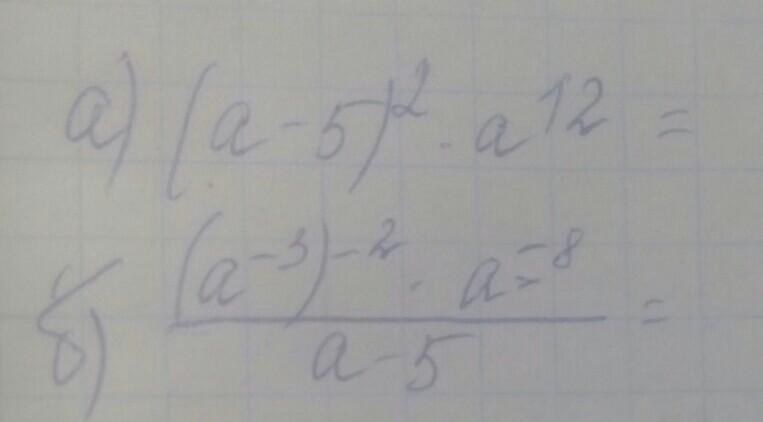 а) (a - 5)² · a¹² =
б) (a⁻³)⁻² · a⁼⁸ / a - 5 =